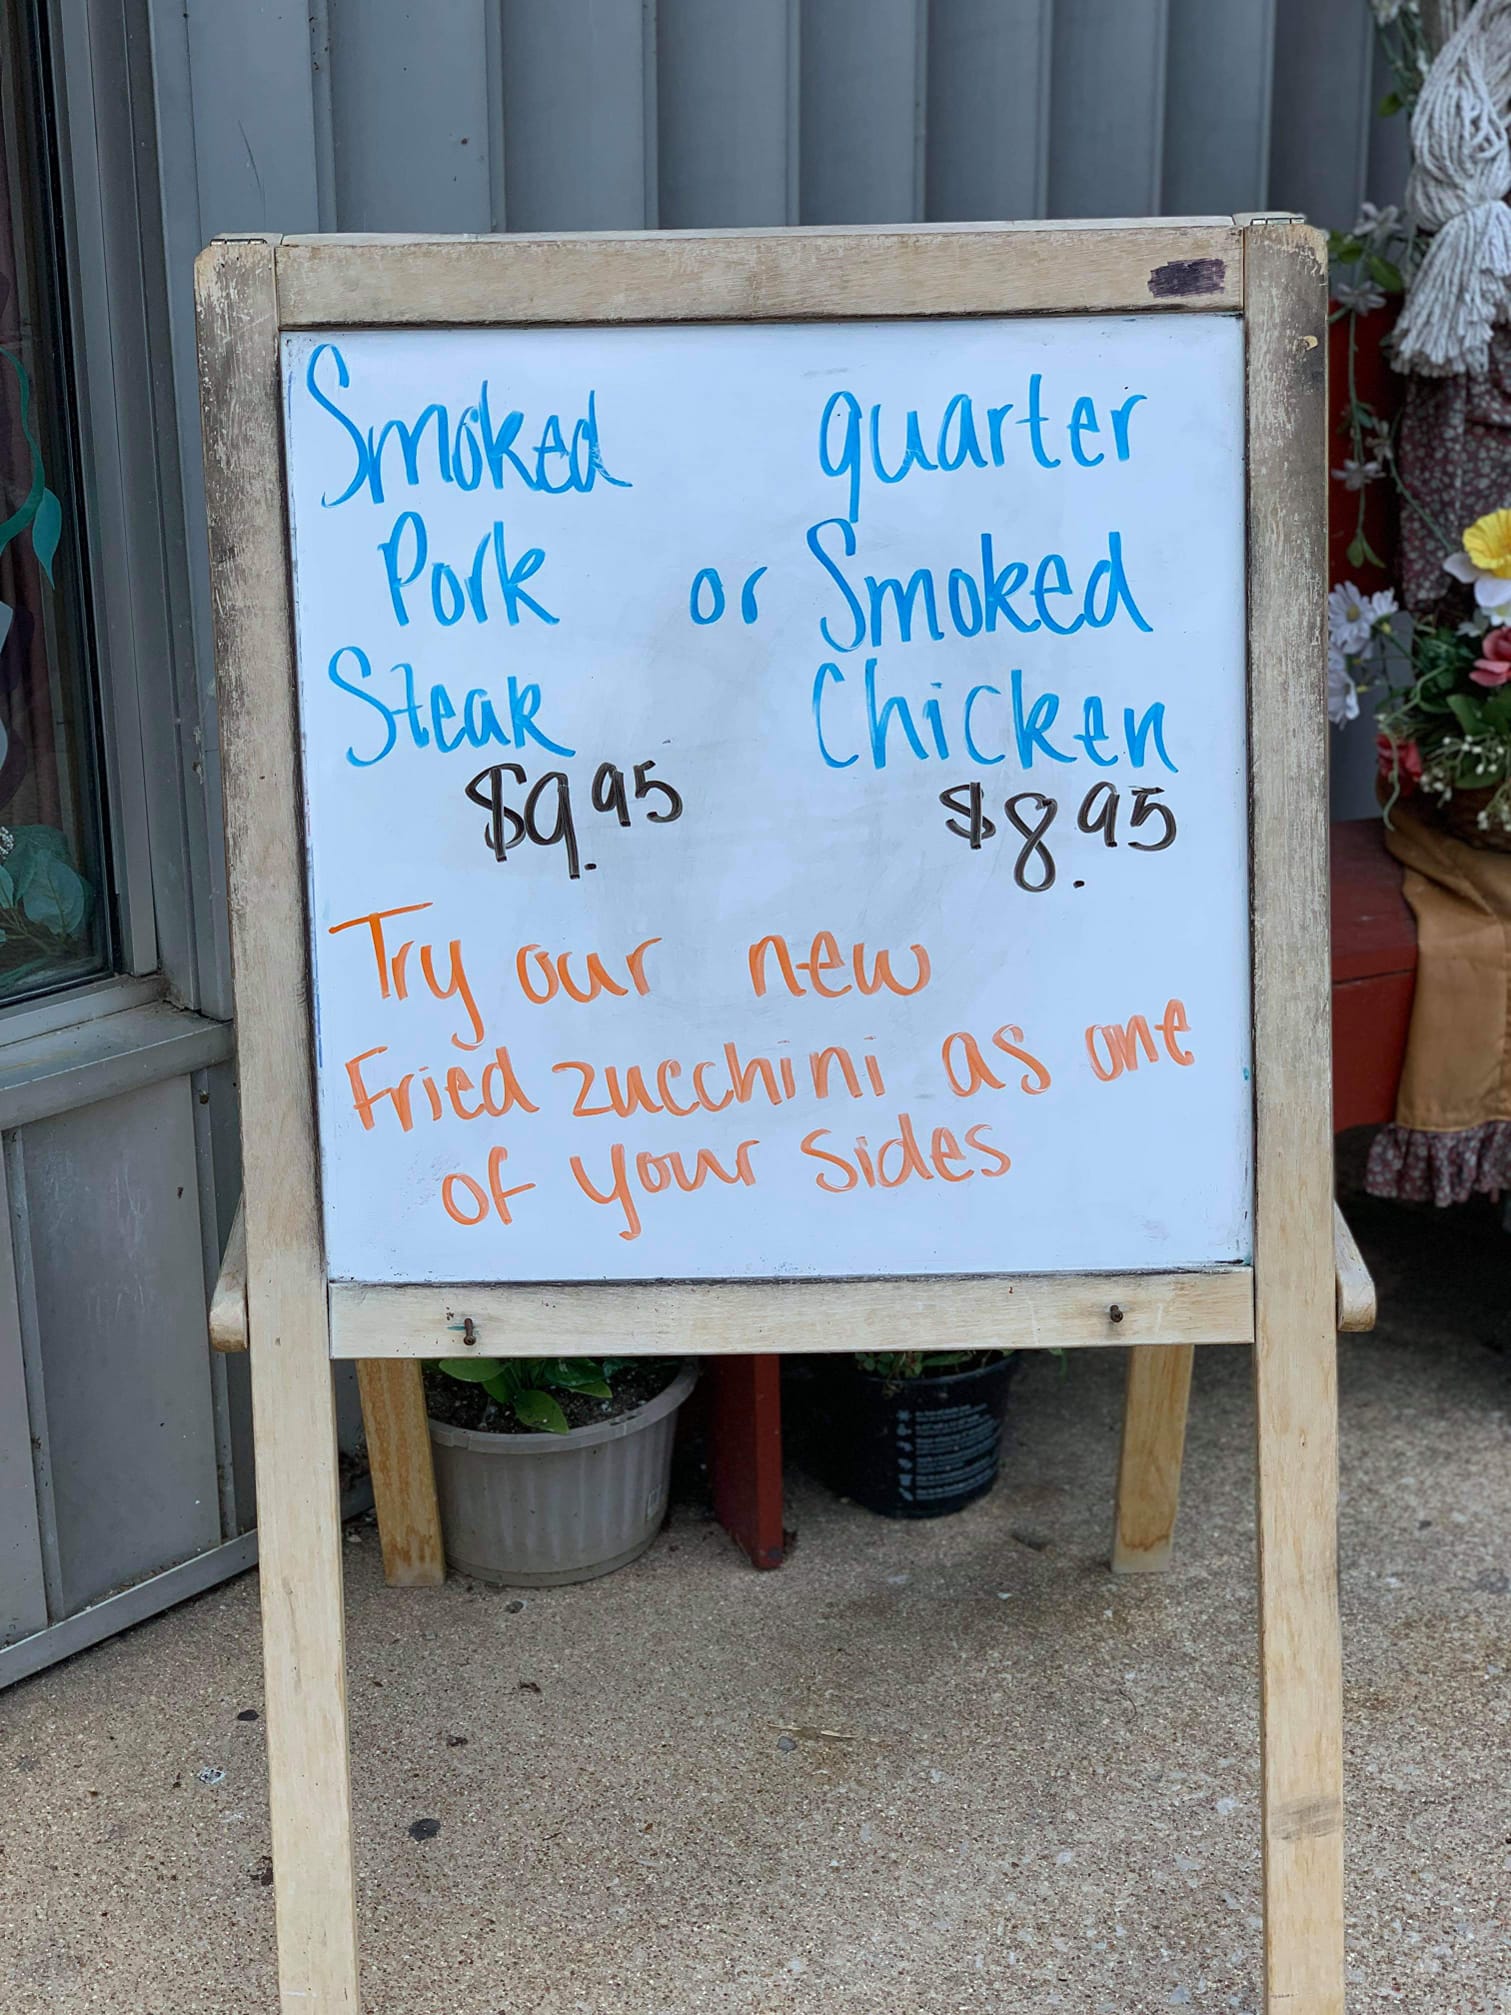 Smoked quarter
Pork or Smoked
Steak Chicken
$9.95 $8.95
Try our new
Fried zucchini as one
of your sides